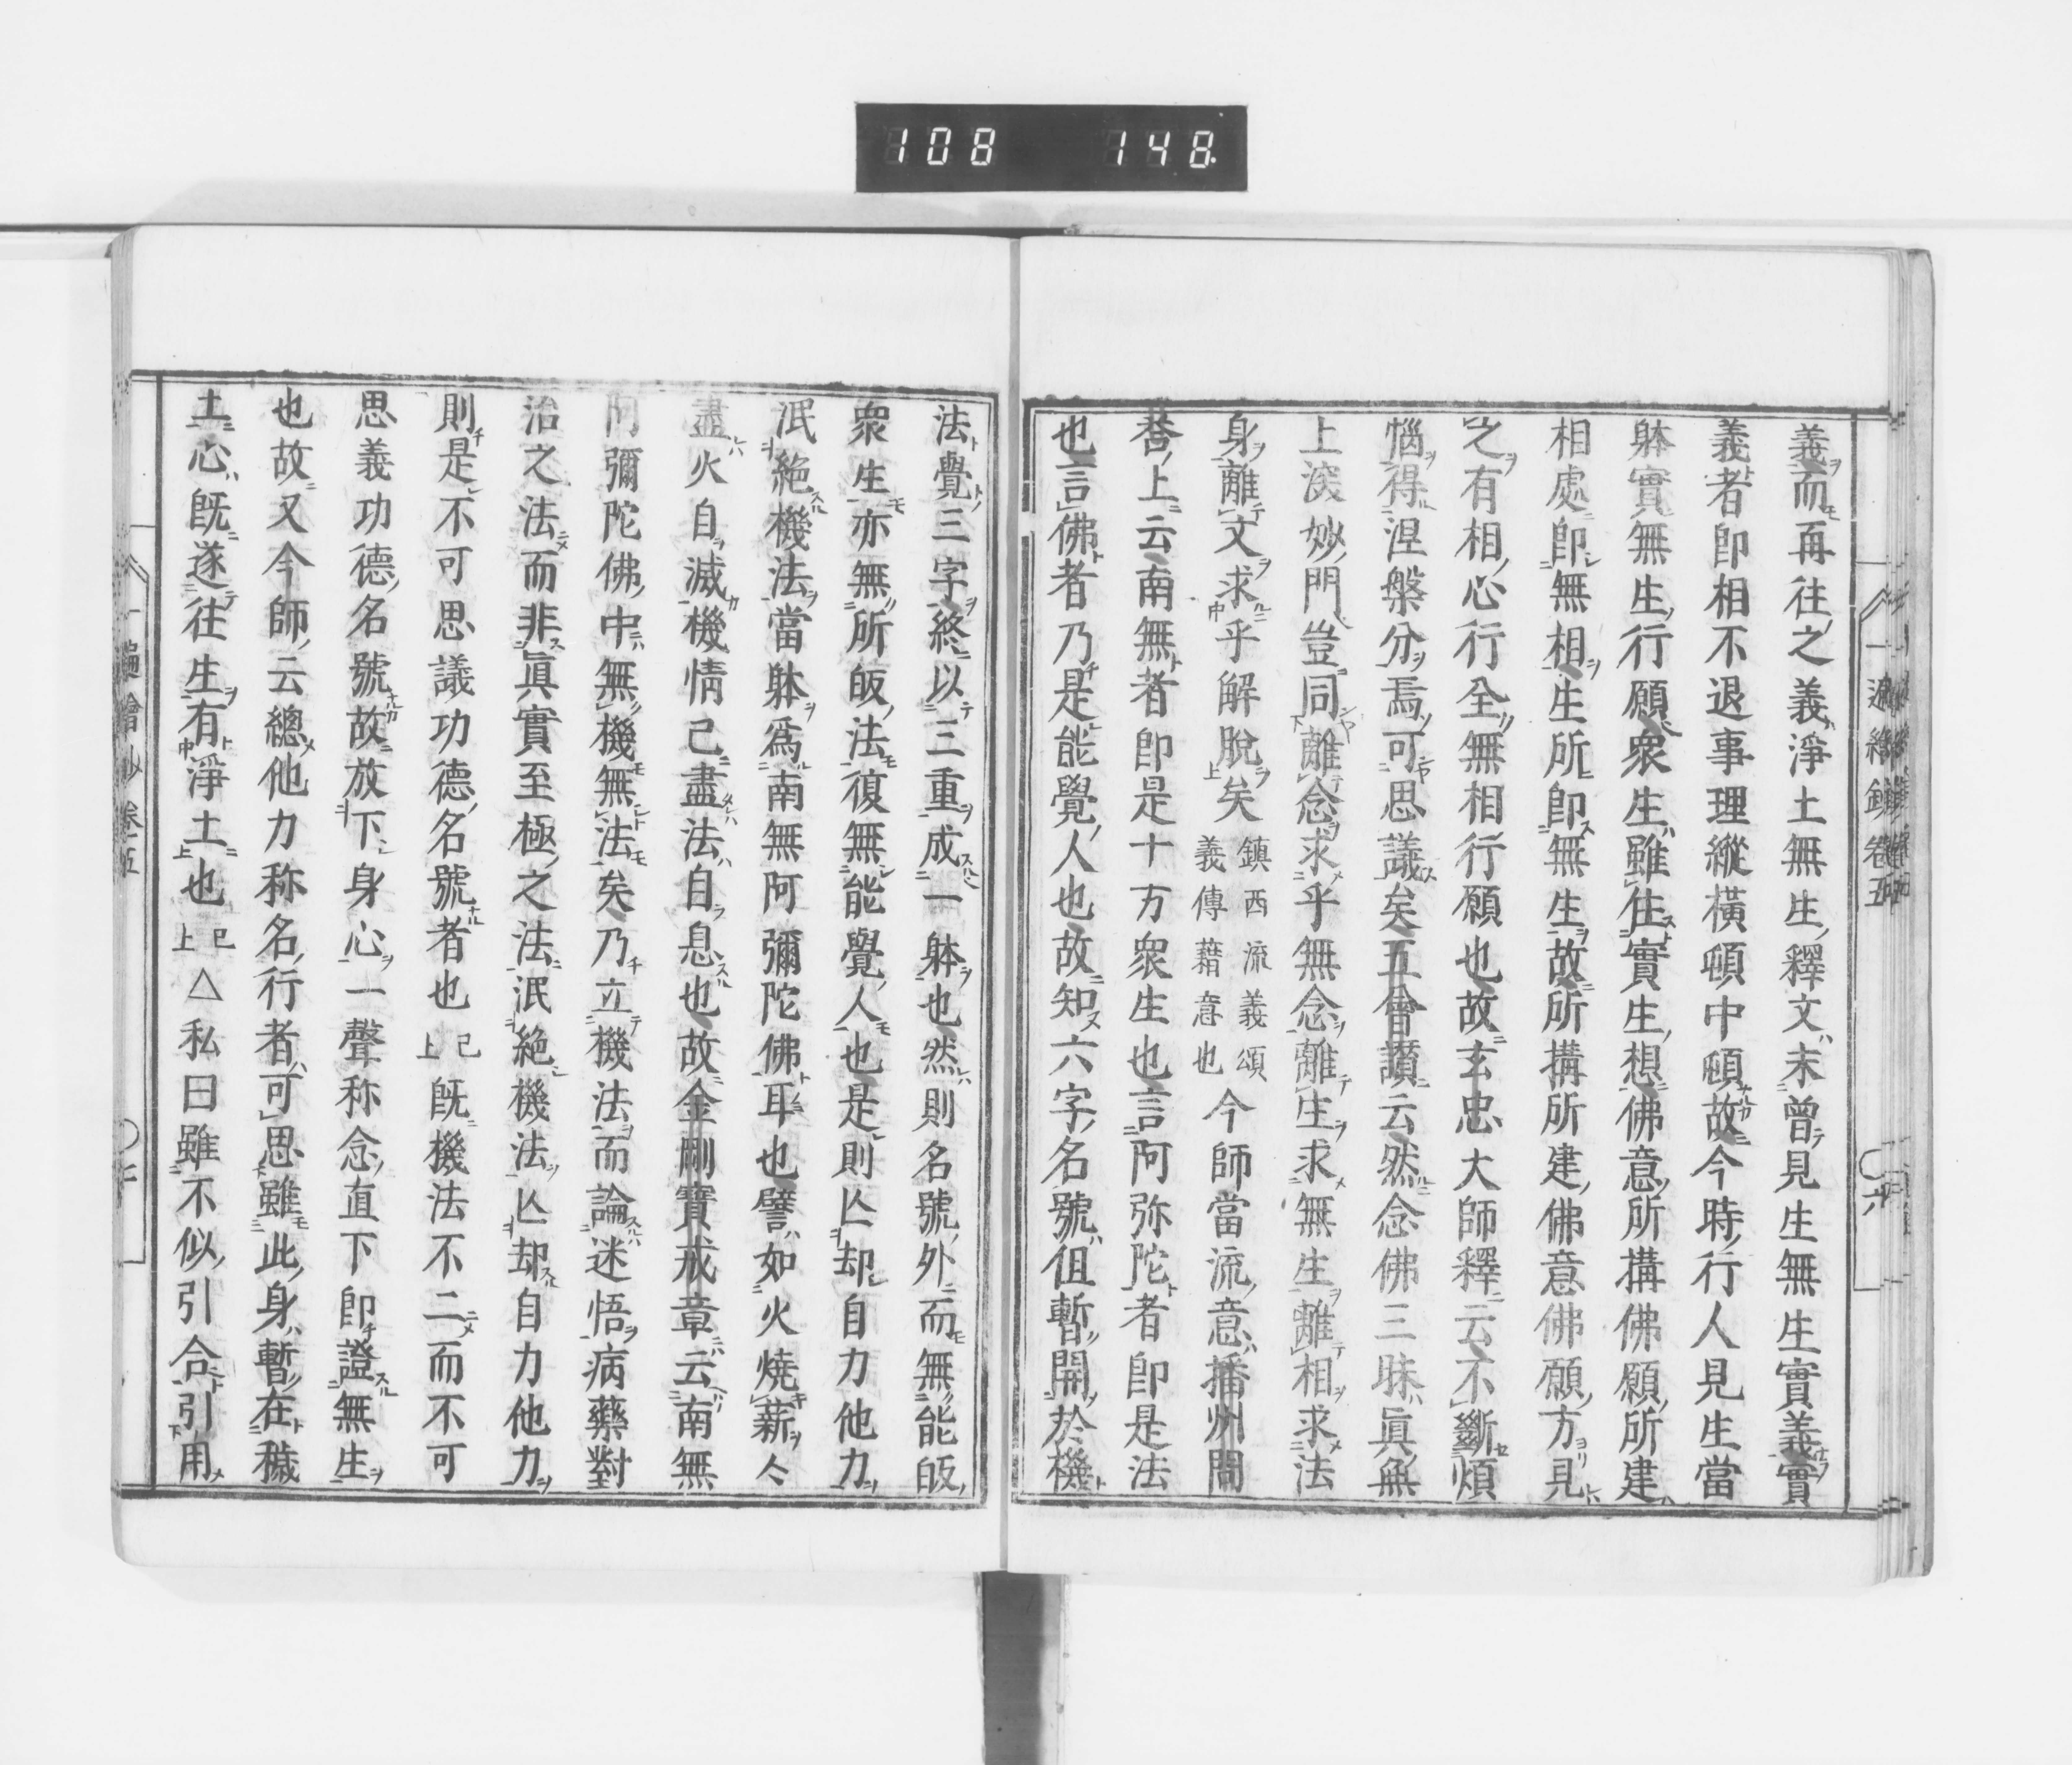 108 148
義而再往之義淨土無生釋文未曾見生無生實義實
義者卽相不退事理縱橫頓中頓故今時行人見生當
躰實無生行願衆生雖住實生想佛意所搆佛願所建
相處卽無相生所卽無生故所搆所建佛意佛願方見
之有相心行全無相行願也故玄忠大師釋云不斷煩
惱得涅槃分焉可思議矣五會讃云然念佛三昧眞無
上深妙門豈同離念求乎無念離生求無生離相求法
身離文求乎解脫矣鎮西流義頌義傳藉意也今師當流意播州問
荅上云南無者卽是十方衆生也言阿弥陀者卽是法
也言佛者乃是能覺人也故知六字名號但暫開於機
法覺三字終以三重成一躰也然則名號外而無能皈
衆生亦無所皈法復無能覺人也是則亾却自力他力
泯絶機法當躰爲南無阿彌陀佛耳也譬如火燒薪亽
盡火自滅機情已盡法自息也故金剛寶戒章云南無
阿彌陀佛中無機無法矣乃立機法而論迷悟病藥對
治之法而非眞實至極之法泯絶機法亾却自力他力
則是不可思議功德名號者也已上旣機法不二而不可
思義功德名號故放下身心一聲称念直下卽證無生
也故又今師云總他力称名行者可思雖此身暫在穢
土心旣遂往生有淨土也已上△私曰雖不似引合引用